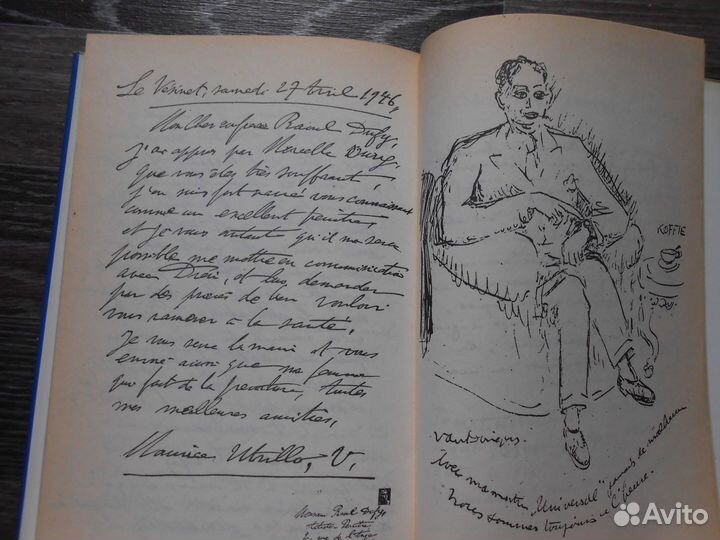 Le Vésinet, samedi 27 Avril 1946,
Mon Cher confrère Raoul Dufy,
j'ai appris par Marcelle Oury,
que vous êtes très souffrant,
j'en suis fort navré vous connaissant
comme un excellent peintre,
et je vous autant qu'il me sera
possible me mettre en communication
avec Dieu, et lui demander
par des prières de bien vouloir
vous ramener à la santé,
Je vous serre la main et vous
envoie ainsi que ma femme
qui fait de la peinture, toutes
mes meilleures amitiés,
Maurice Utrillo, V,
Monsieur Raoul Dufy
Artiste Peintre
KOFFIE
van Dongen.
Avec ma montre "Universal" jamais de
nous sommes toujours à l'heure.
Avito